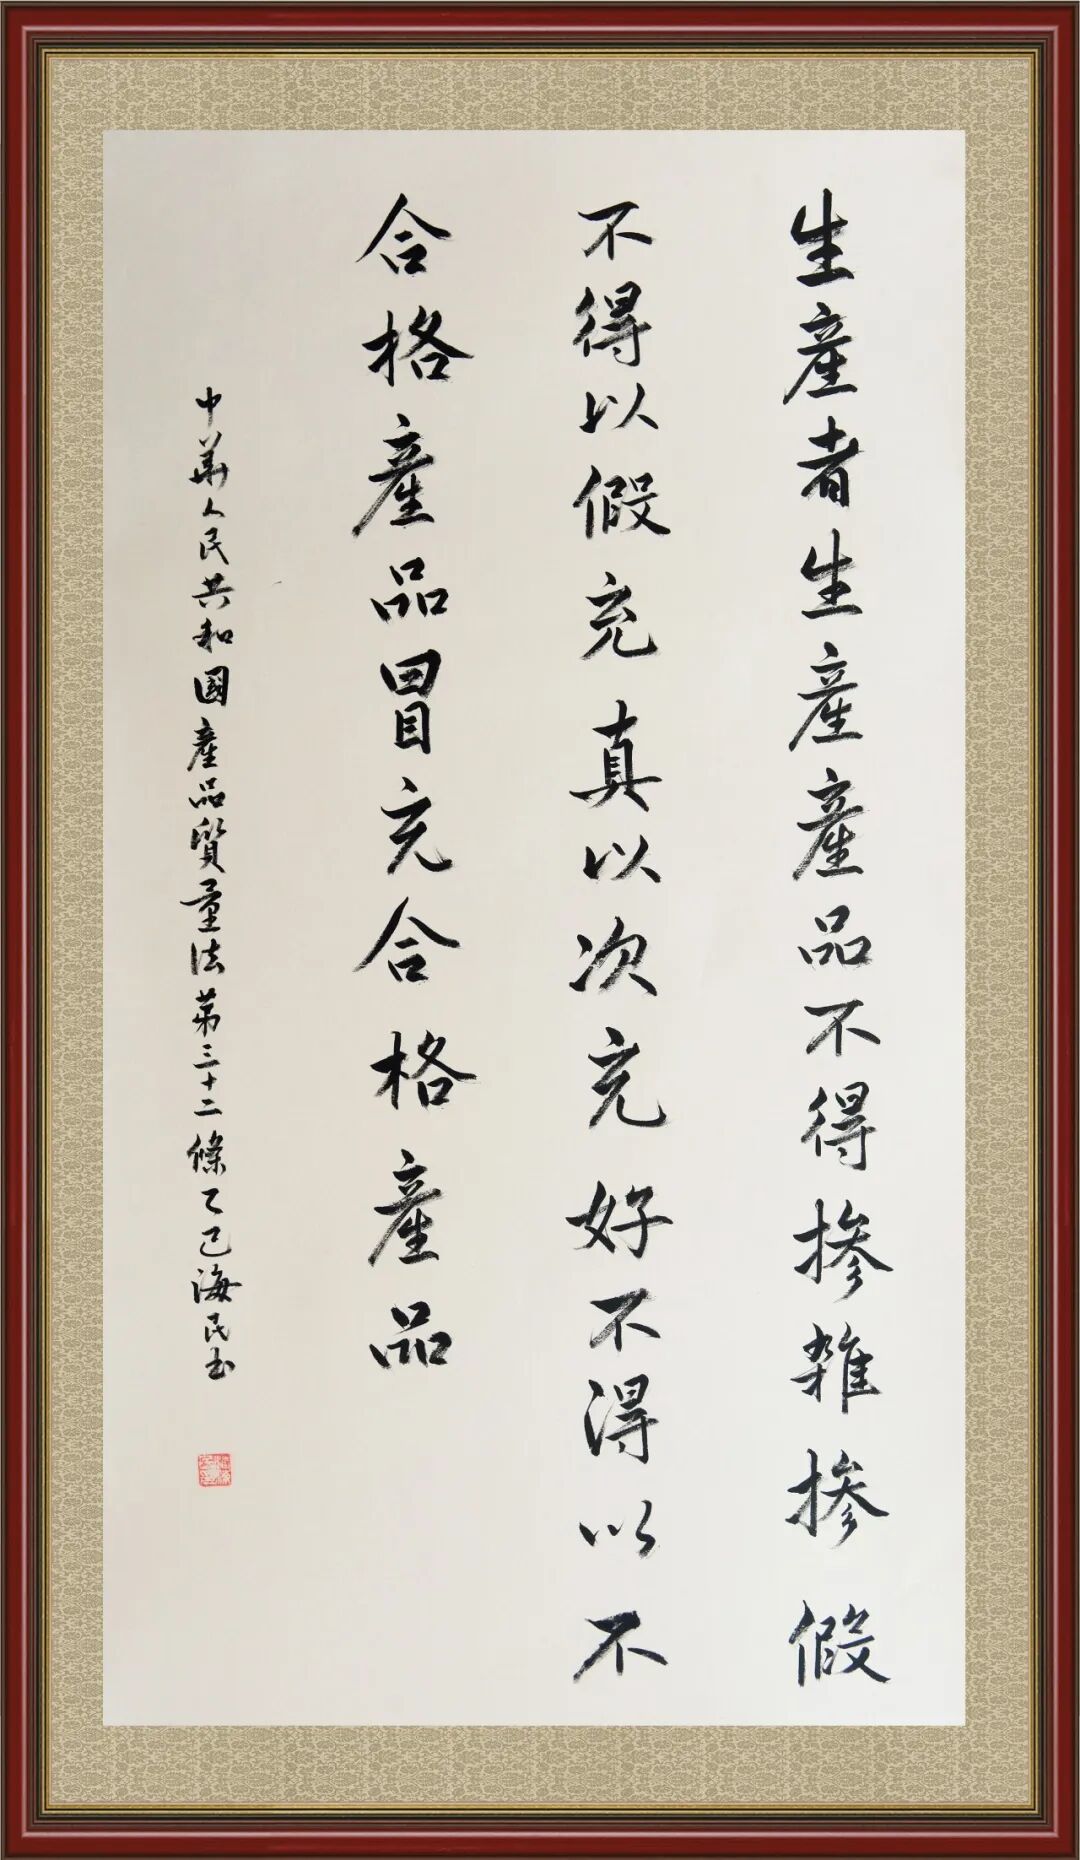 生產者生產產品不得掺雜掺假
不得以假充真以次充好不得以不
合格產品冒充合格產品
中華人民共和國產品質量法第三十二條乙巳海民书